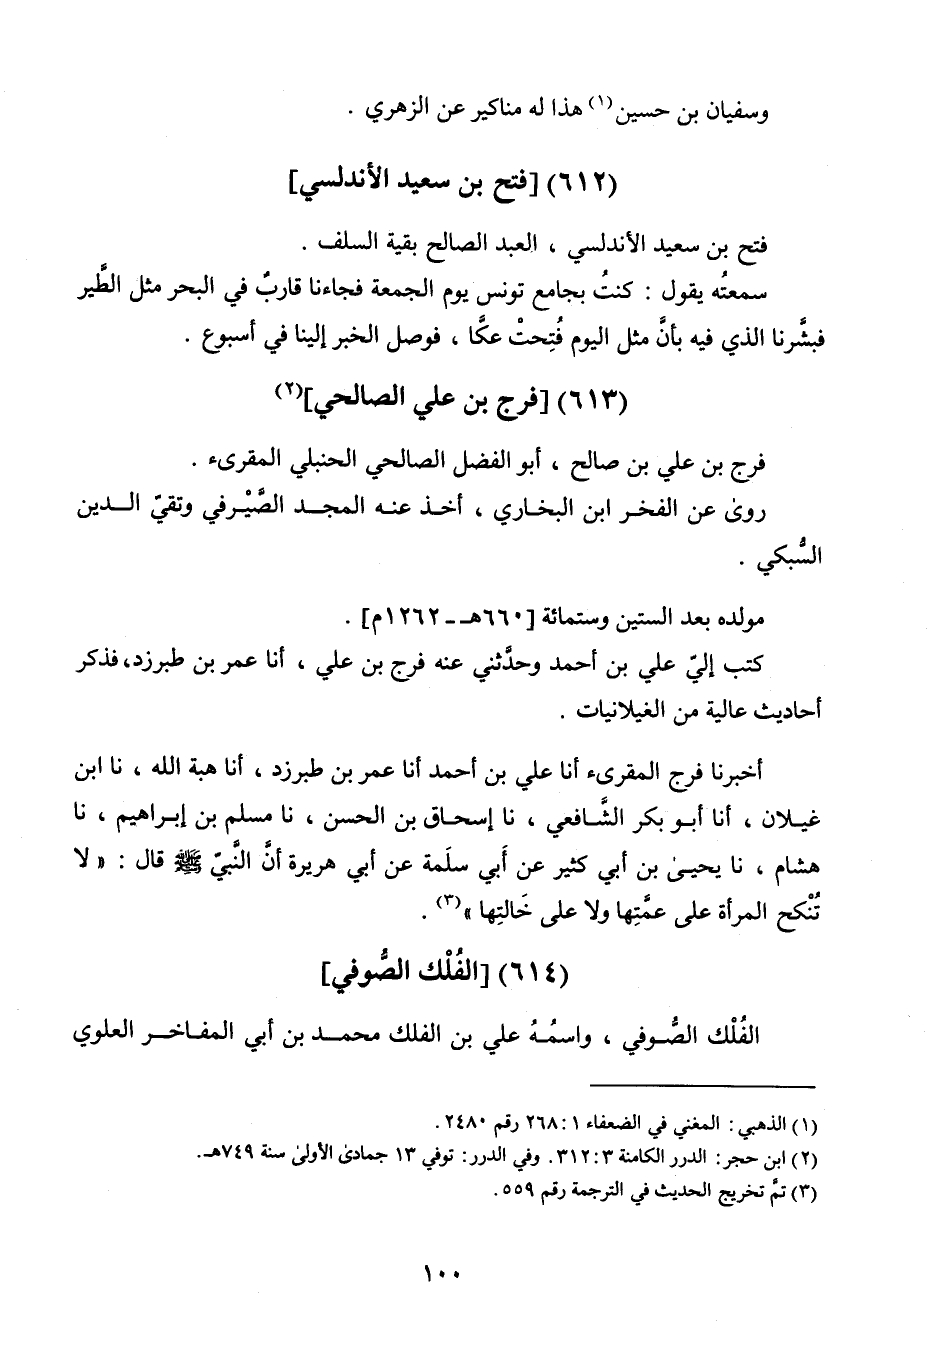 وسفيان بن حسين(١) هذا له مناكير عن الزهري .
(٦١٢) [فتح بن سعيد الأندلسي]
فتح بن سعيد الأندلسي ، العبد الصالح بقية السلف .
سمعتُه يقول : كنتُ بجامع تونس يوم الجمعة فجاءنا قاربٌ في البحر مثل الطَّير
فبشَّرنا الذي فيه بأنَّ مثل اليوم فُتِحتْ عكَّا ، فوصل الخبر إلينا في أسبوع .
(٦١٣) [فرج بن علي الصالحي](٢)
فرج بن علي بن صالح ، أبو الفضل الصالحي الحنبلي المقرىء .
روىٰ عن الفخر ابن البخاري ، أخذ عنه المجد الصَّيْرفي وتقيّ الدين
السُّبكي .
مولده بعد الستين وستمائة [٦٦٠هـ - ١٢٦٢م] .
كتب إليّ علي بن أحمد وحدَّثني عنه فرج بن علي ، أنا عمر بن طبرزد، فذكر
أحاديث عالية من الغيلانيات .
أخبرنا فرج المقرىء أنا علي بن أحمد أنا عمر بن طبرزد ، أنا هبة الله ، نا ابن
غيلان ، أنا أبو بكر الشَّافعي ، نا إسحاق بن الحسن ، نا مسلم بن إبراهيم ، نا
هشام ، نا يحيىٰ بن أبي كثير عن أَبي سلَمة عن أبي هريرة أنَّ النَّبيّ ﷺ قال : « لا
تُنْكح المرأة على عمَّتِها ولا على خَالتِها »(٣) .
(٦١٤) [الفُلْك الصُّوفي]
الفُلْك الصُّوفي ، واسمُهُ علي بن الفلك محمد بن أبي المفاخر العلوي
(١) الذهبي: المغني في الضعفاء ١:٢٦٨ رقم ٢٤٨٠.
(٢) ابن حجر: الدرر الكامنة ٣:٣١٢. وفي الدرر: توفي ١٣ جمادىٰ الأولىٰ سنة ٧٤٩هـ.
(٣) تمَّ تخريج الحديث في الترجمة رقم ٥٥٩.
١٠٠